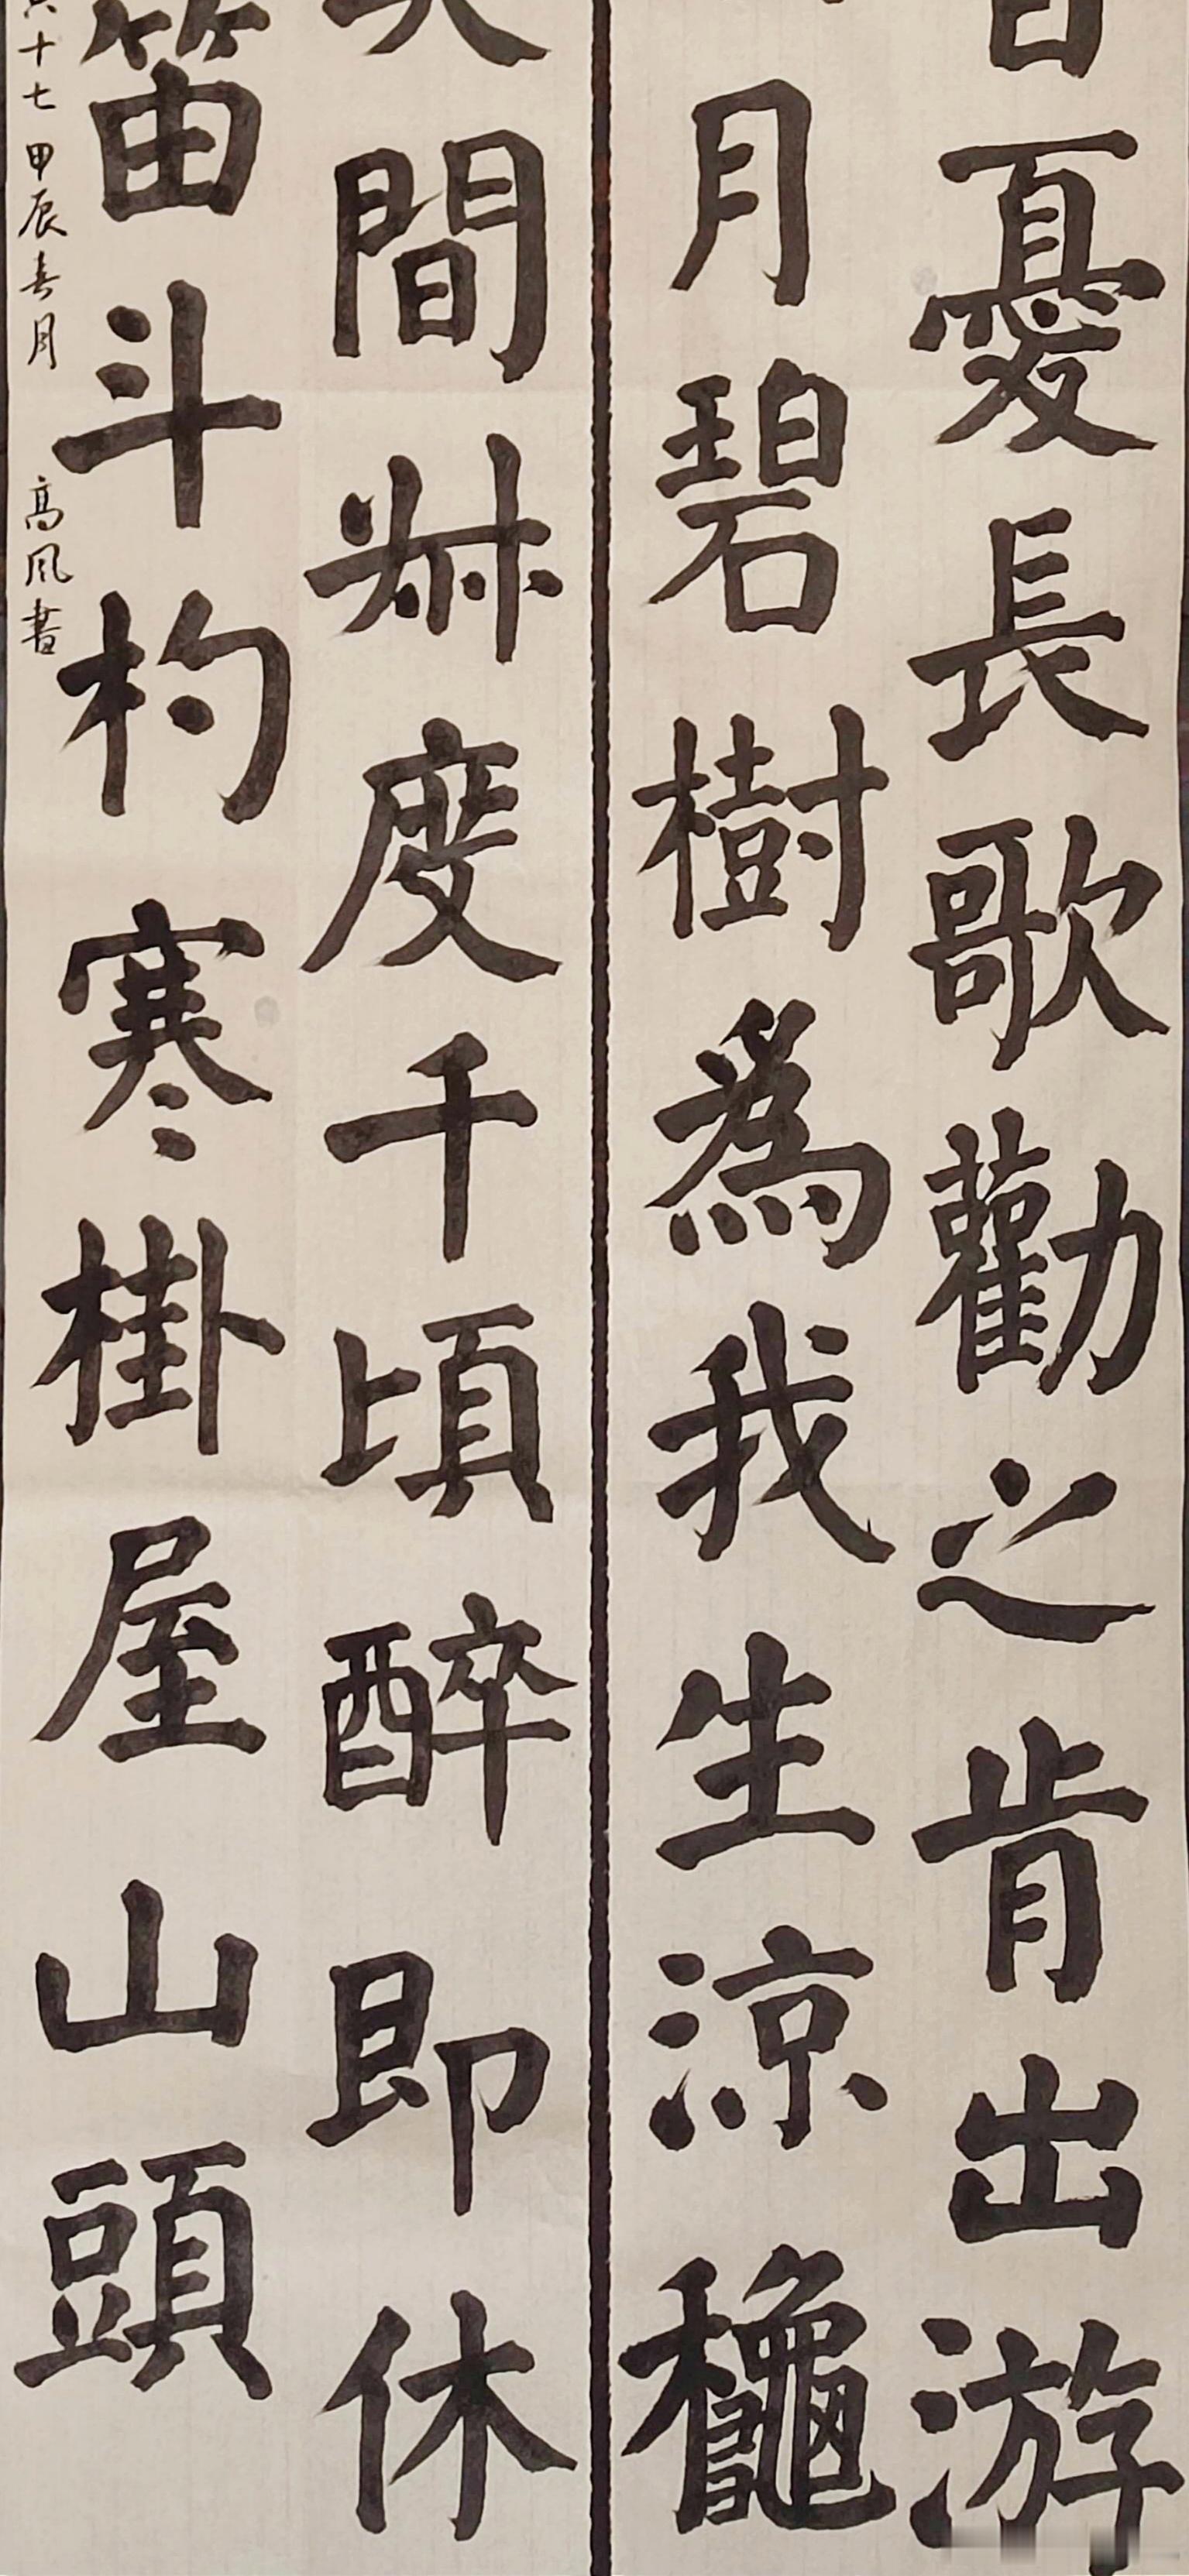 百憂長歌勸之肯出游
月碧樹爲我生涼龝
莫間叔度千頃醉即休
笛斗杓寒掛屋山頭
十七 甲辰春月 高風書